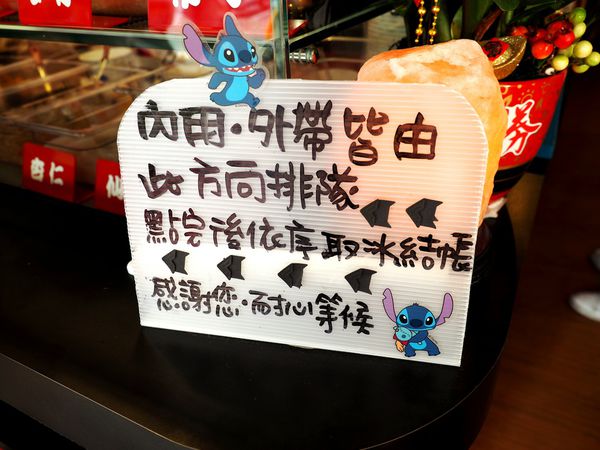 內用·外帶皆由
此方向排隊
點完後依序取冰結帳
感謝您·耐心等候
杏仁
仙